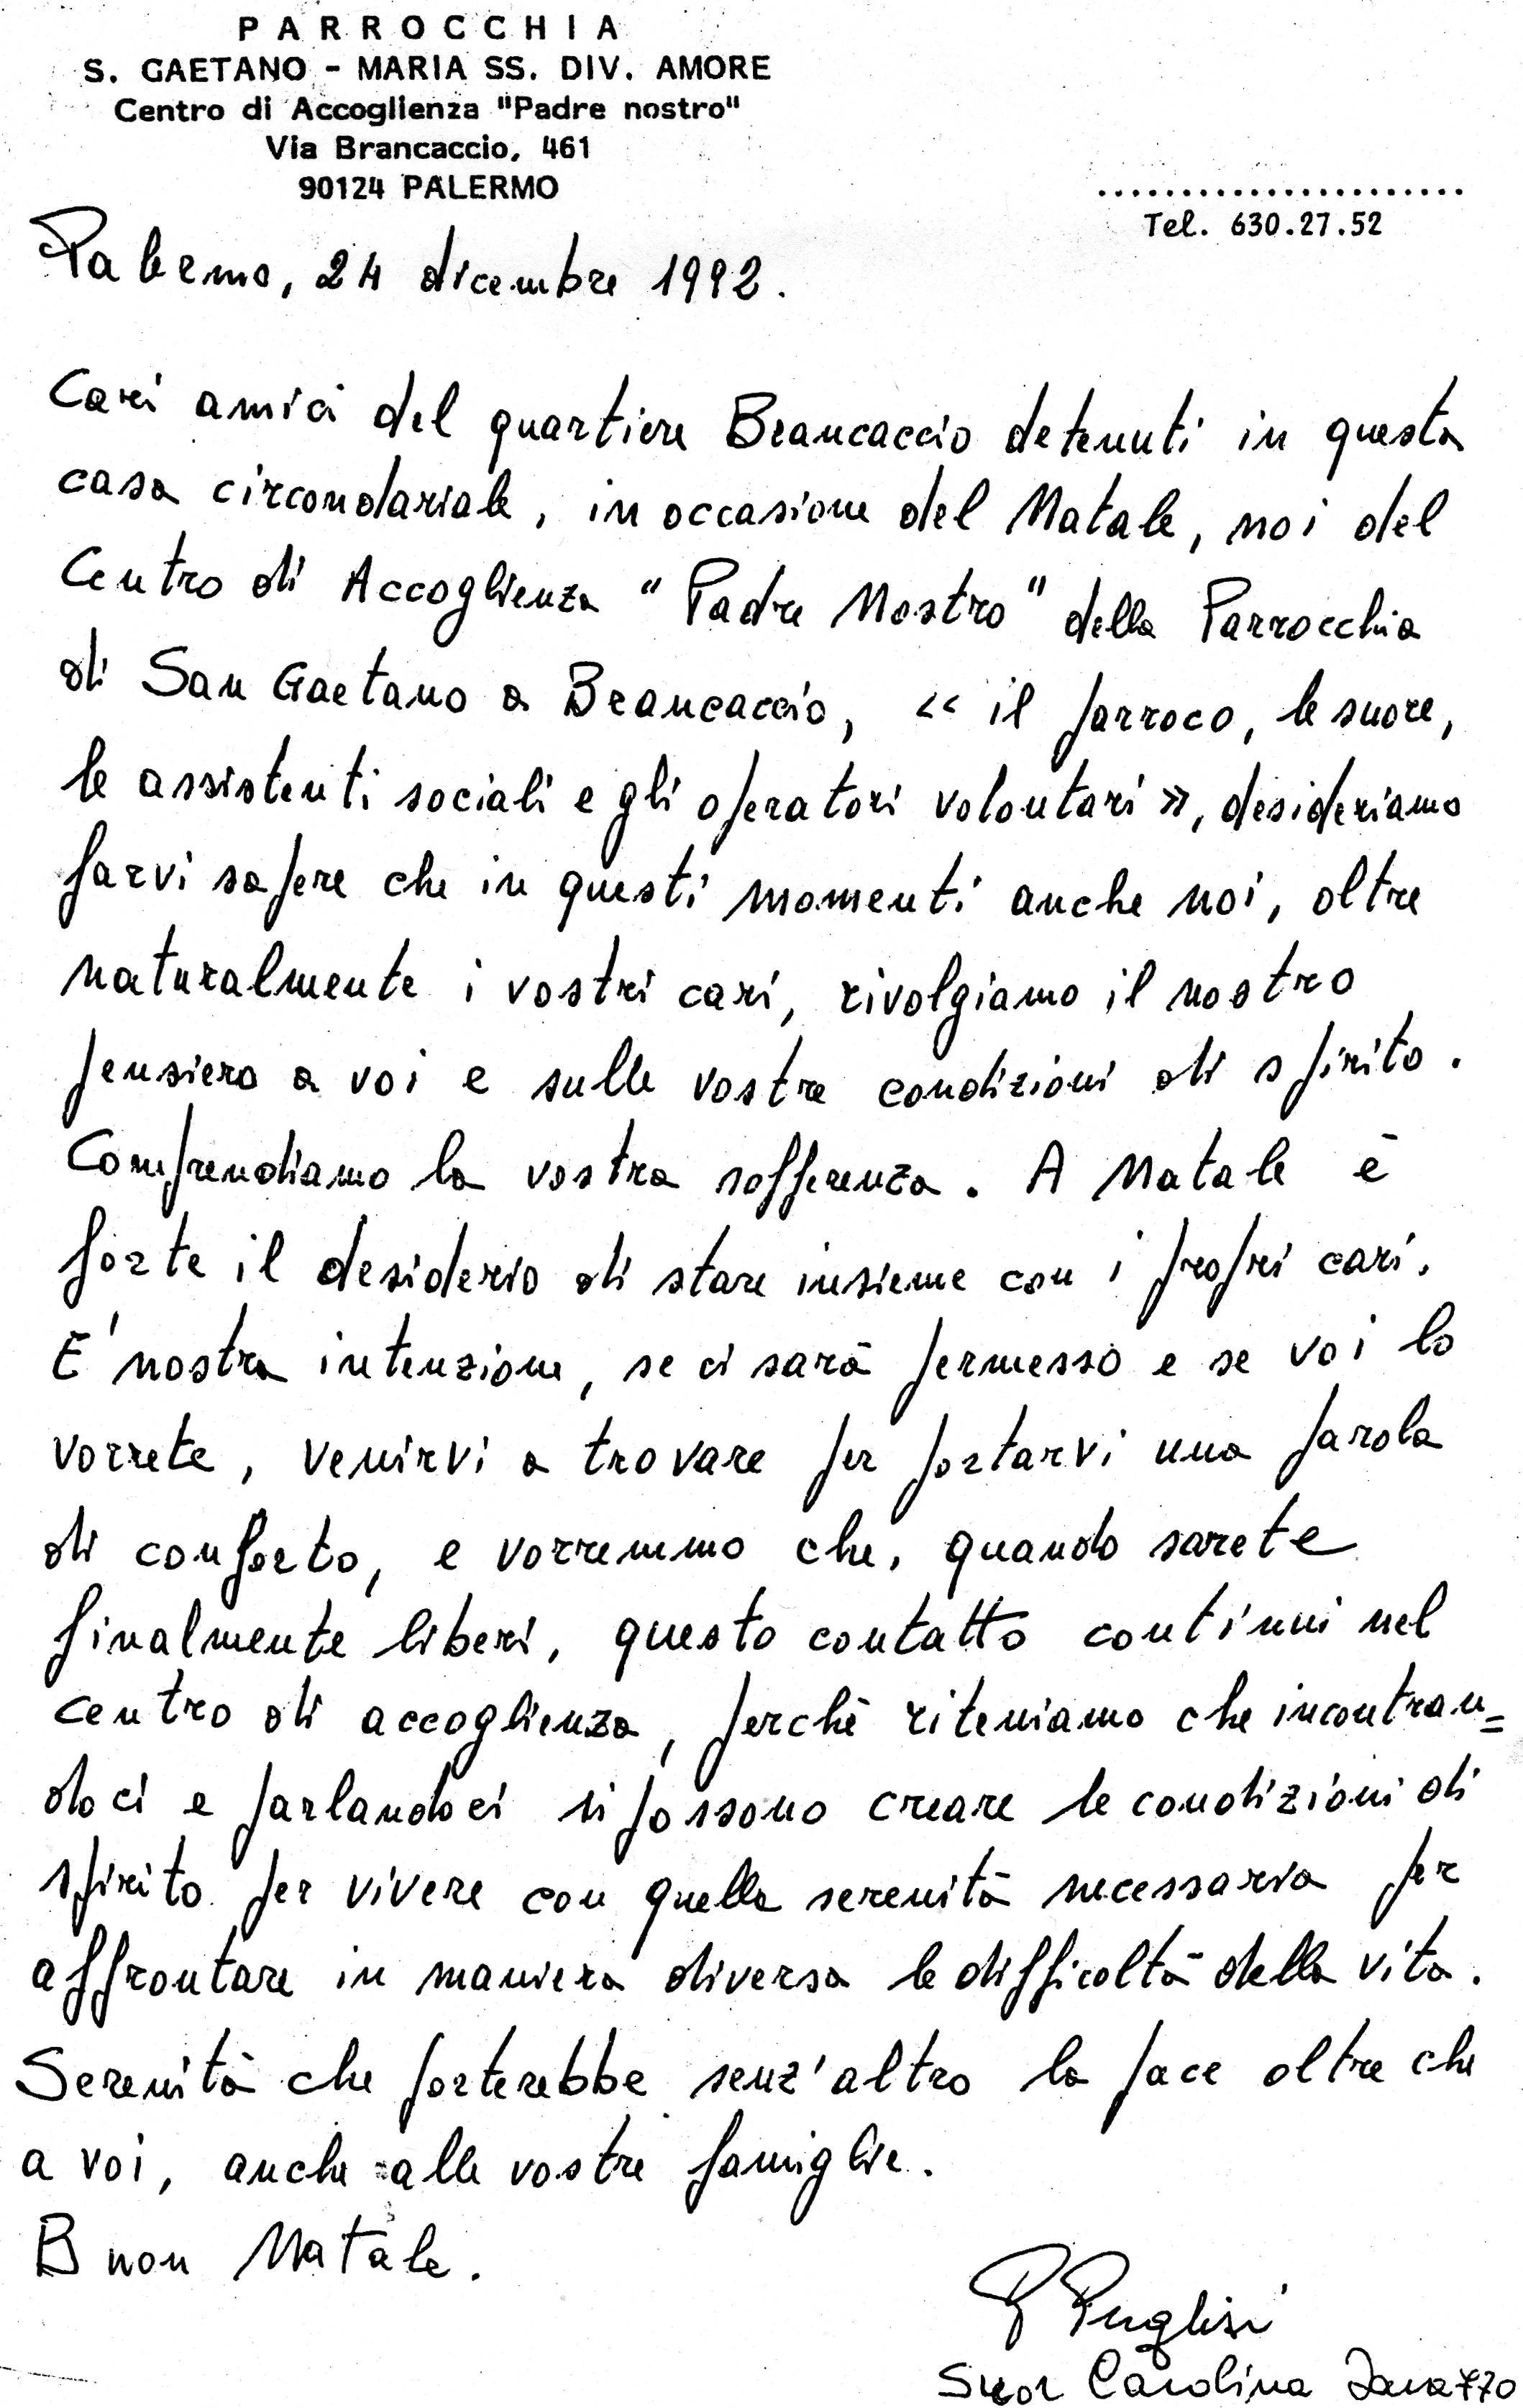 PARROCCHIA
S. GAETANO - MARIA SS. DIV. AMORE
Centro di Accoglienza "Padre nostro"
Via Brancaccio, 461
90124 PALERMO
......................
Tel. 630.27.52
Palermo, 24 dicembre 1992.
Cari amici del quartiere Brancaccio detenuti in questa
casa circondariale, in occasione del Natale, noi del
Centro di Accoglienza "Padre Nostro" della Parrocchia
di San Gaetano a Brancaccio, << il parroco, le suore,
le assistenti sociali e gli operatori volontari >>, desideriamo
farvi sapere che in questi momenti anche noi, oltre
naturalmente i vostri cari, rivolgiamo il nostro
pensiero a voi e sulle vostre condizioni di spirito.
Comprendiamo la vostra sofferenza. A Natale è
forte il desiderio di stare insieme con i propri cari.
E' nostra intenzione, se ci sarà permesso e se voi lo
vorrete, venirvi a trovare per portarvi una parola
di conforto, e vorremmo che, quando sarete
finalmente liberi, questo contatto continui nel
centro di accoglienza, perchè riteniamo che incontran=
doci e parlandoci si possono creare le condizioni di
spirito per vivere con quella serenità necessaria per
affrontare in maniera diversa le difficoltà della vita.
Serenità che porterebbe senz'altro la pace oltre che
a voi, anche alle vostre famiglie.
Buon Natale.
P Puglisi
Suor Carolina Iavazzo